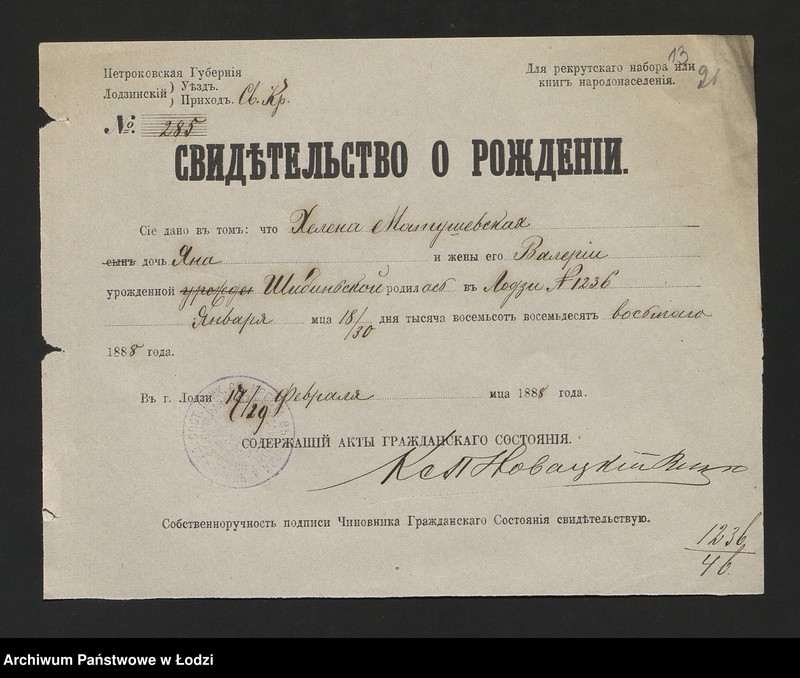 13
21
Петроковская Губернія
Лодзинскій ) Уѣздъ.
) Приходъ. Св. Кр.
Для рекрутскаго набора или
книгъ народонаселенія.
№ 285
СВИДѢТЕЛЬСТВО О РОЖДЕНІИ.
Сіе дано въ томъ: что Хелена Матушевская
сынъ дочь Яна и жены его Валеріи
урожденной урожден Шибиньской родилась въ Лодзи № 1236
Января мца 18/30 дня тысяча восемьсотъ восемьдесятъ восьмого
1888 года.
Въ г. Лодзи 17/29 Февраля мца 1888 года.
СОДЕРЖАЩІЙ АКТЫ ГРАЖДАНСКАГО СОСТОЯНІЯ.
Новацкій
Собственноручность подписи Чиновника Гражданскаго Состоянія свидѣтельствую.
1236
46.
Archiwum Państwowe w Łodzi